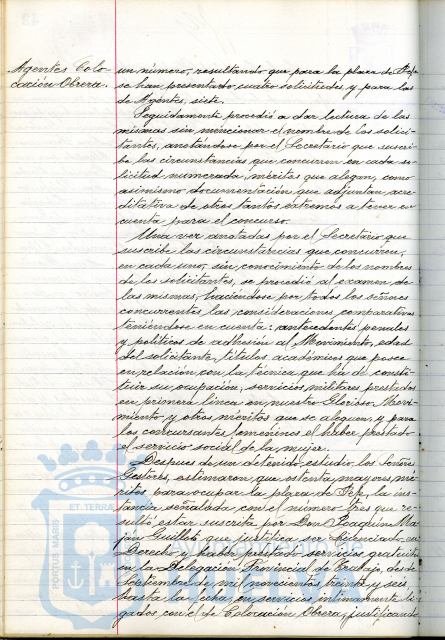 Agentes Colo-
cación Obrera.
un número, resultando que para la plaza de Jefe
se han presentado cuatro solicitudes y para las
de Agentes, siete.
Seguidamente procedió a dar lectura de las
mismas sin mencionar el nombre de los solici-
tantes, anotándose por el Secretario que suscri-
be las circunstancias que concurren en cada so-
licitud numerada, méritos que alegan, como
asimismo documentación que adjuntan, acre-
ditativa de otros tantos extremos a tener en
cuenta para el concurso.
Una vez anotadas por el Secretario que
suscribe las circunstancias que concurren,
en cada uno, sin conocimiento de los nombres
de los solicitantes, se procedió al examen de
las mismas, haciéndose por todos los señores
concurrentes las consideraciones comparativas
teniéndose en cuenta: antecedentes penales
y políticos de adhesión al Movimiento, edad
del solicitante, títulos académicos que posee
en relación con la técnica que ha de consti-
tuir su ocupación, servicios militares prestados
en primera línea en nuestro Glorioso Movi-
miento, y otros méritos que se aleguen, y para
los concursantes femeninos el haber prestado
el servicio social de la mujer.
Después de un detenido estudio, los Señores
Gestores, estimaron que ostenta mayores mé-
ritos para ocupar la plaza de Jefe, la ins-
tancia señalada con el número tres que re-
sultó estar suscrita por Don Joaquín Ma-
Guillot que justifica ser Licenciado en
Derecho y haber prestado servicios gratuitos
en la Delegación Provincial de Trabajo, desde
Septiembre de mil novecientos treinta y seis
hasta la fecha, en servicios íntimamente li-
gados con el de Colocación Obrera, justificando
PORTUS MAGIS
ET TERRA